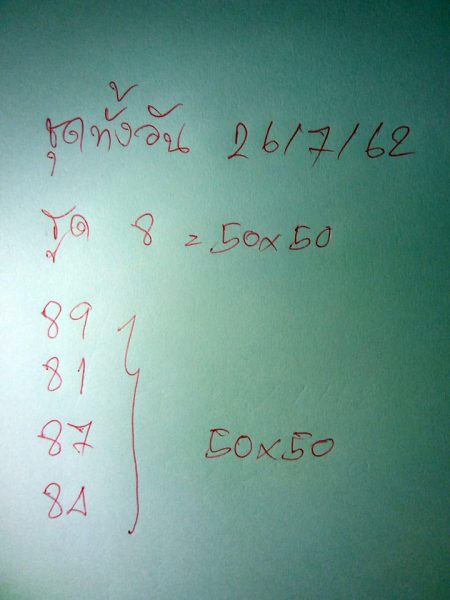 ชุดทั้งวัน 26/7/62
รูด 8 = 50x50
89
81
87
84
50x50